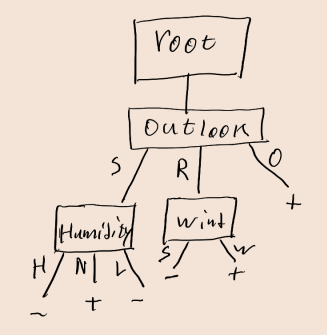 root
Outlook
S R O
+
Humidity Wind
H N L S W
- + - - +